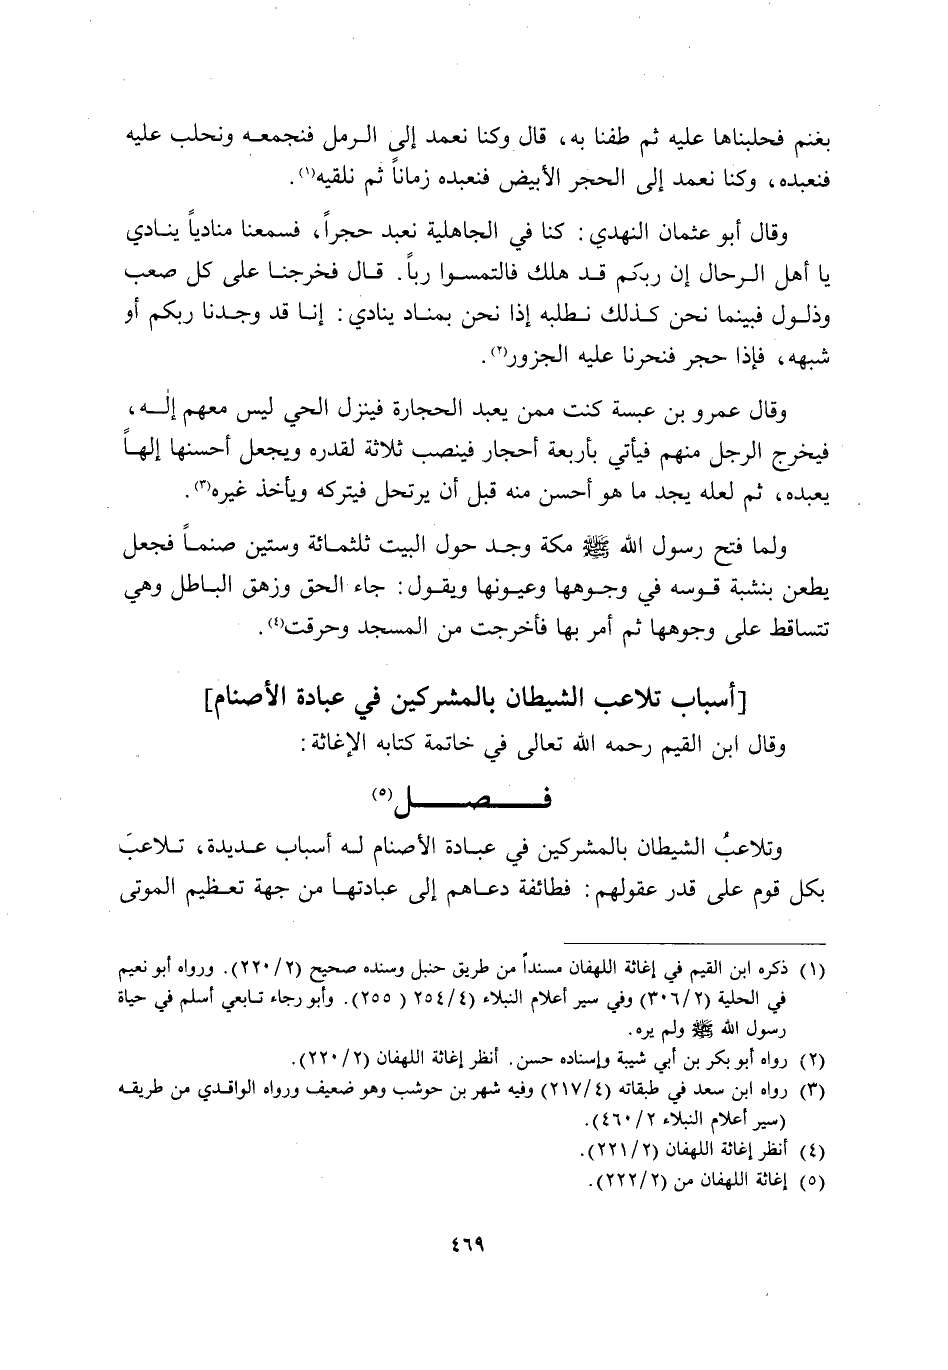 بغنم فحلبناها عليه ثم طفنا به، قال وكنا نعمد إلى الرمل فنجمعه ونحلب عليه
فنعبده، وكنا نعمد إلى الحجر الأبيض فنعبده زماناً ثم نلقيه(١).
وقال أبو عثمان النهدي: كنا في الجاهلية نعبد حجراً، فسمعنا منادياً ينادي
يا أهل الرحال إن ربكم قد هلك فالتمسوا رباً. قال فخرجنا على كل صعب
وذلول فبينما نحن كذلك نطلبه إذا نحن بمناد ينادي: إنا قد وجدنا ربكم أو
شبهه، فإذا حجر فنحرنا عليه الجزور(٢).
وقال عمرو بن عبسة كنت ممن يعبد الحجارة فينزل الحي ليس معهم إلٰه،
فيخرج الرجل منهم فيأتي بأربعة أحجار فينصب ثلاثة لقدره ويجعل أحسنها إلهاً
يعبده، ثم لعله يجد ما هو أحسن منه قبل أن يرتحل فيتركه ويأخذ غيره(٣).
ولما فتح رسول الله ﷺ مكة وجد حول البيت ثلثمائة وستين صنماً فجعل
يطعن بنشبة قوسه في وجوهها وعيونها ويقول: جاء الحق وزهق الباطل وهي
تتساقط على وجوهها ثم أمر بها فأخرجت من المسجد وحرقت(٤).
[أسباب تلاعب الشيطان بالمشركين في عبادة الأصنام]
وقال ابن القيم رحمه الله تعالى في خاتمة كتابه الإغاثة:
فـــصـــل(٥)
وتلاعبُ الشيطان بالمشركين في عبادة الأصنام له أسباب عديدة، تلاعبَ
بكل قوم على قدر عقولهم: فطائفة دعاهم إلى عبادتها من جهة تعظيم الموتى
(١) ذكره ابن القيم في إغاثة اللهفان مسنداً من طريق حنبل وسنده صحيح (٢/ ٢٢٠). ورواه أبو نعيم
في الحلية (٢/ ٣٠٦) وفي سير أعلام النبلاء (٤/ ٢٥٤ ( ٢٥٥). وأبو رجاء تابعي أسلم في حياة
رسول الله ﷺ ولم يره.
(٢) رواه أبو بكر بن أبي شيبة وإسناده حسن. أنظر إغاثة اللهفان (٢/ ٢٢٠).
(٣) رواه ابن سعد في طبقاته (٤/ ٢١٧) وفيه شهر بن حوشب وهو ضعيف ورواه الواقدي من طريقه
(سير أعلام النبلاء ٢/ ٤٦٠).
(٤) أنظر إغاثة اللهفان (٢/ ٢٢١).
(٥) إغاثة اللهفان من (٢/ ٢٢٢).
٤٦٩